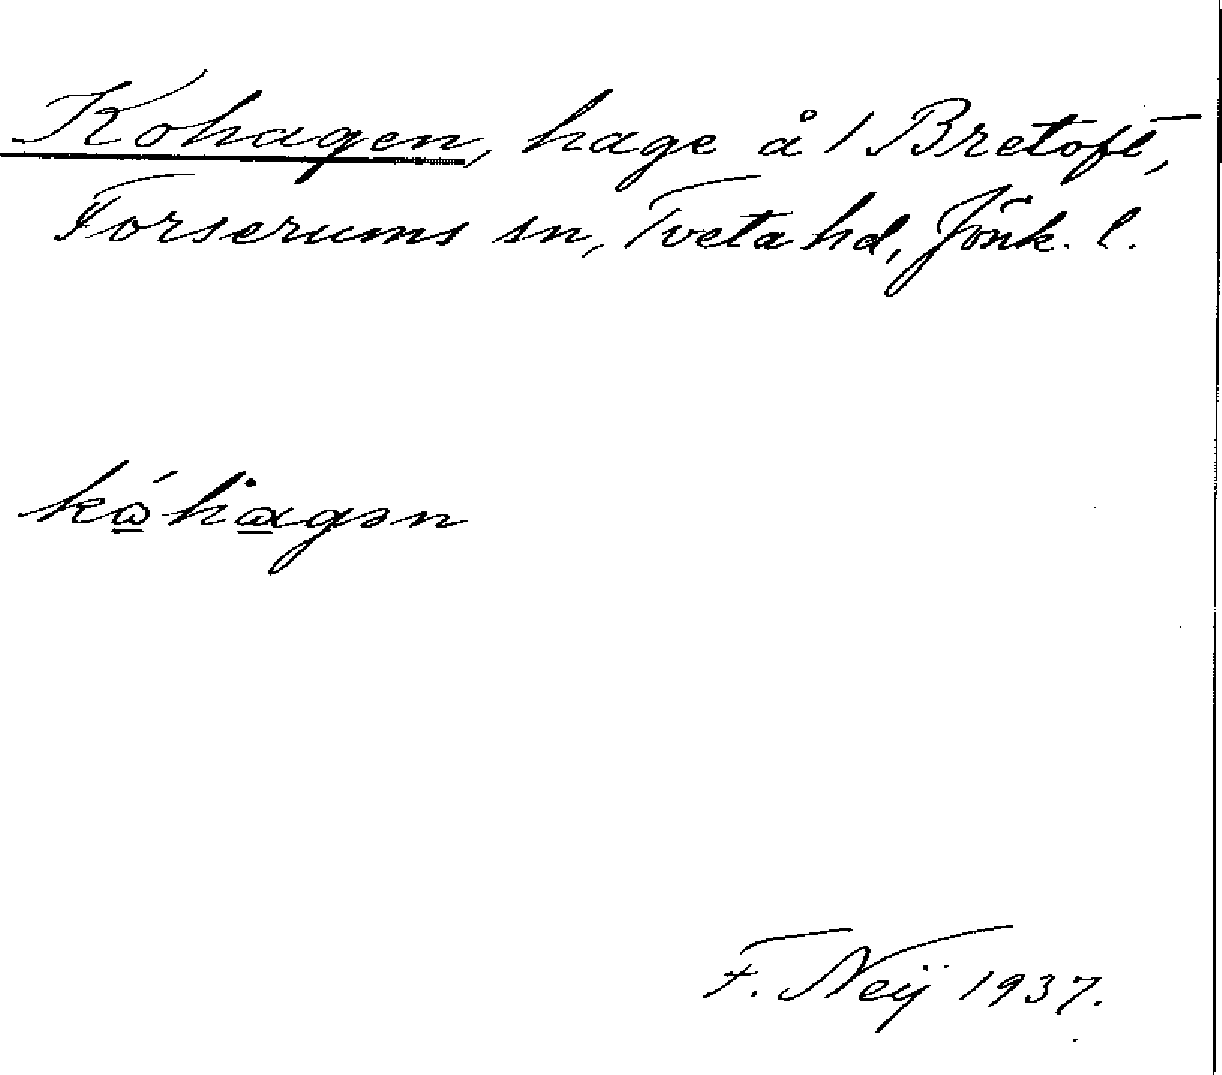 Kohagen, hage å / Bretoft,
Forserums sn, Tveta hd, Jönk. l.
kώ́hαgən
F. Neij 1937.